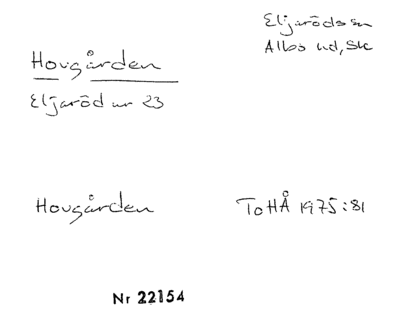 Eljarödssn
Albo hd, Sk
Hovgården
Eljaröd nr 23
Hovgården
ToHÅ 1975:81
Nr 22154